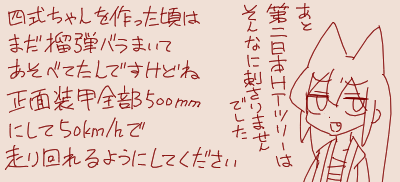 四式ちゃんを作った頃は
まだ榴弾バラまいて
あそべてたしですけどね
正面装甲全部500mm
にして50km/hで
走り回れるようにしてください
あと
第二日本HTツリーは
そんなに刺さりません
でした